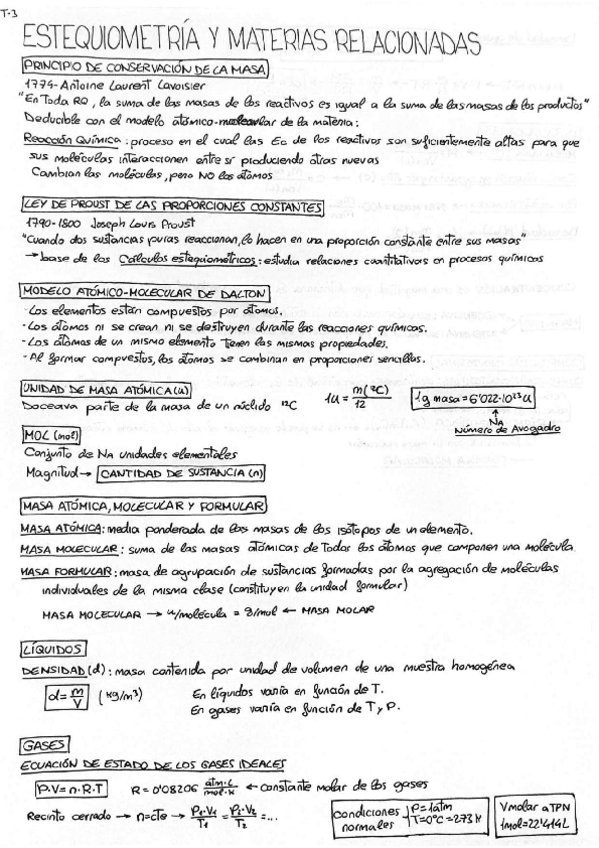 T-3
ESTEQUIOMETRÍA Y MATERIAS RELACIONADAS
PRINCIPIO DE CONSERVACIÓN DE LA MASA
1774-Antoine Laurent Lavoisier
"En toda RQ, la suma de las masas de los reactivos es igual a la suma de las masas de los productos"
Deducible con el modelo atómico-molecular de la materia:
Reacción Química: proceso en el cual las Ec de los reactivos son suficientemente altas para que
sus moléculas interaccionen entre sí produciendo otras nuevas
Cambian las moléculas, pero NO los átomos
LEY DE PROUST DE LAS PROPORCIONES CONSTANTES
1790-1800 Joseph Louis Proust
"Cuando dos sustancias puras reaccionan, lo hacen en una proporción constante entre sus masas"
→ base de los Cálculos estequiométricos: estudia relaciones cuantitativas en procesos químicos
MODELO ATÓMICO-MOLECULAR DE DALTON
- Los elementos están compuestos por átomos.
- Los átomos ni se crean ni se destruyen durante las reacciones químicas.
- Los átomos de un mismo elemento tienen las mismas propiedades.
- Al formar compuestos, los átomos se combinan en proporciones sencillas.
UNIDAD DE MASA ATÓMICA (u)
Doceava parte de la masa de un núclido ¹²C 1u = m(¹²C)/12 1g masa = 6'022·10²³ u
NA
Número de Avogadro
MOL (mol)
Conjunto de NA unidades elementales
Magnitud → CANTIDAD DE SUSTANCIA (n)
MASA ATÓMICA, MOLECULAR Y FORMULAR
MASA ATÓMICA: media ponderada de las masas de los isótopos de un elemento.
MASA MOLECULAR: suma de las masas atómicas de todos los átomos que componen una molécula.
MASA FORMULAR: masa de agrupación de sustancias formadas por la agregación de moléculas
individuales de la misma clase (constituyen la unidad formular)
MASA MOLECULAR → u/molécula = g/mol ← MASA MOLAR
LÍQUIDOS
DENSIDAD (d): masa contenida por unidad de volumen de una muestra homogénea
d = m/V (kg/m³) En líquidos varía en función de T.
En gases varía en función de T y P.
GASES
ECUACIÓN DE ESTADO DE LOS GASES IDEALES
P·V = n·R·T R = 0'08206 atm·L/mol·K ← constante molar de los gases
Recinto cerrado → n=cte → P₁·V₁/T₁ = P₂·V₂/T₂ = ...
condiciones normales P=1atm T=0ºC=273K
Vmolar a TPN 1mol=22'414L